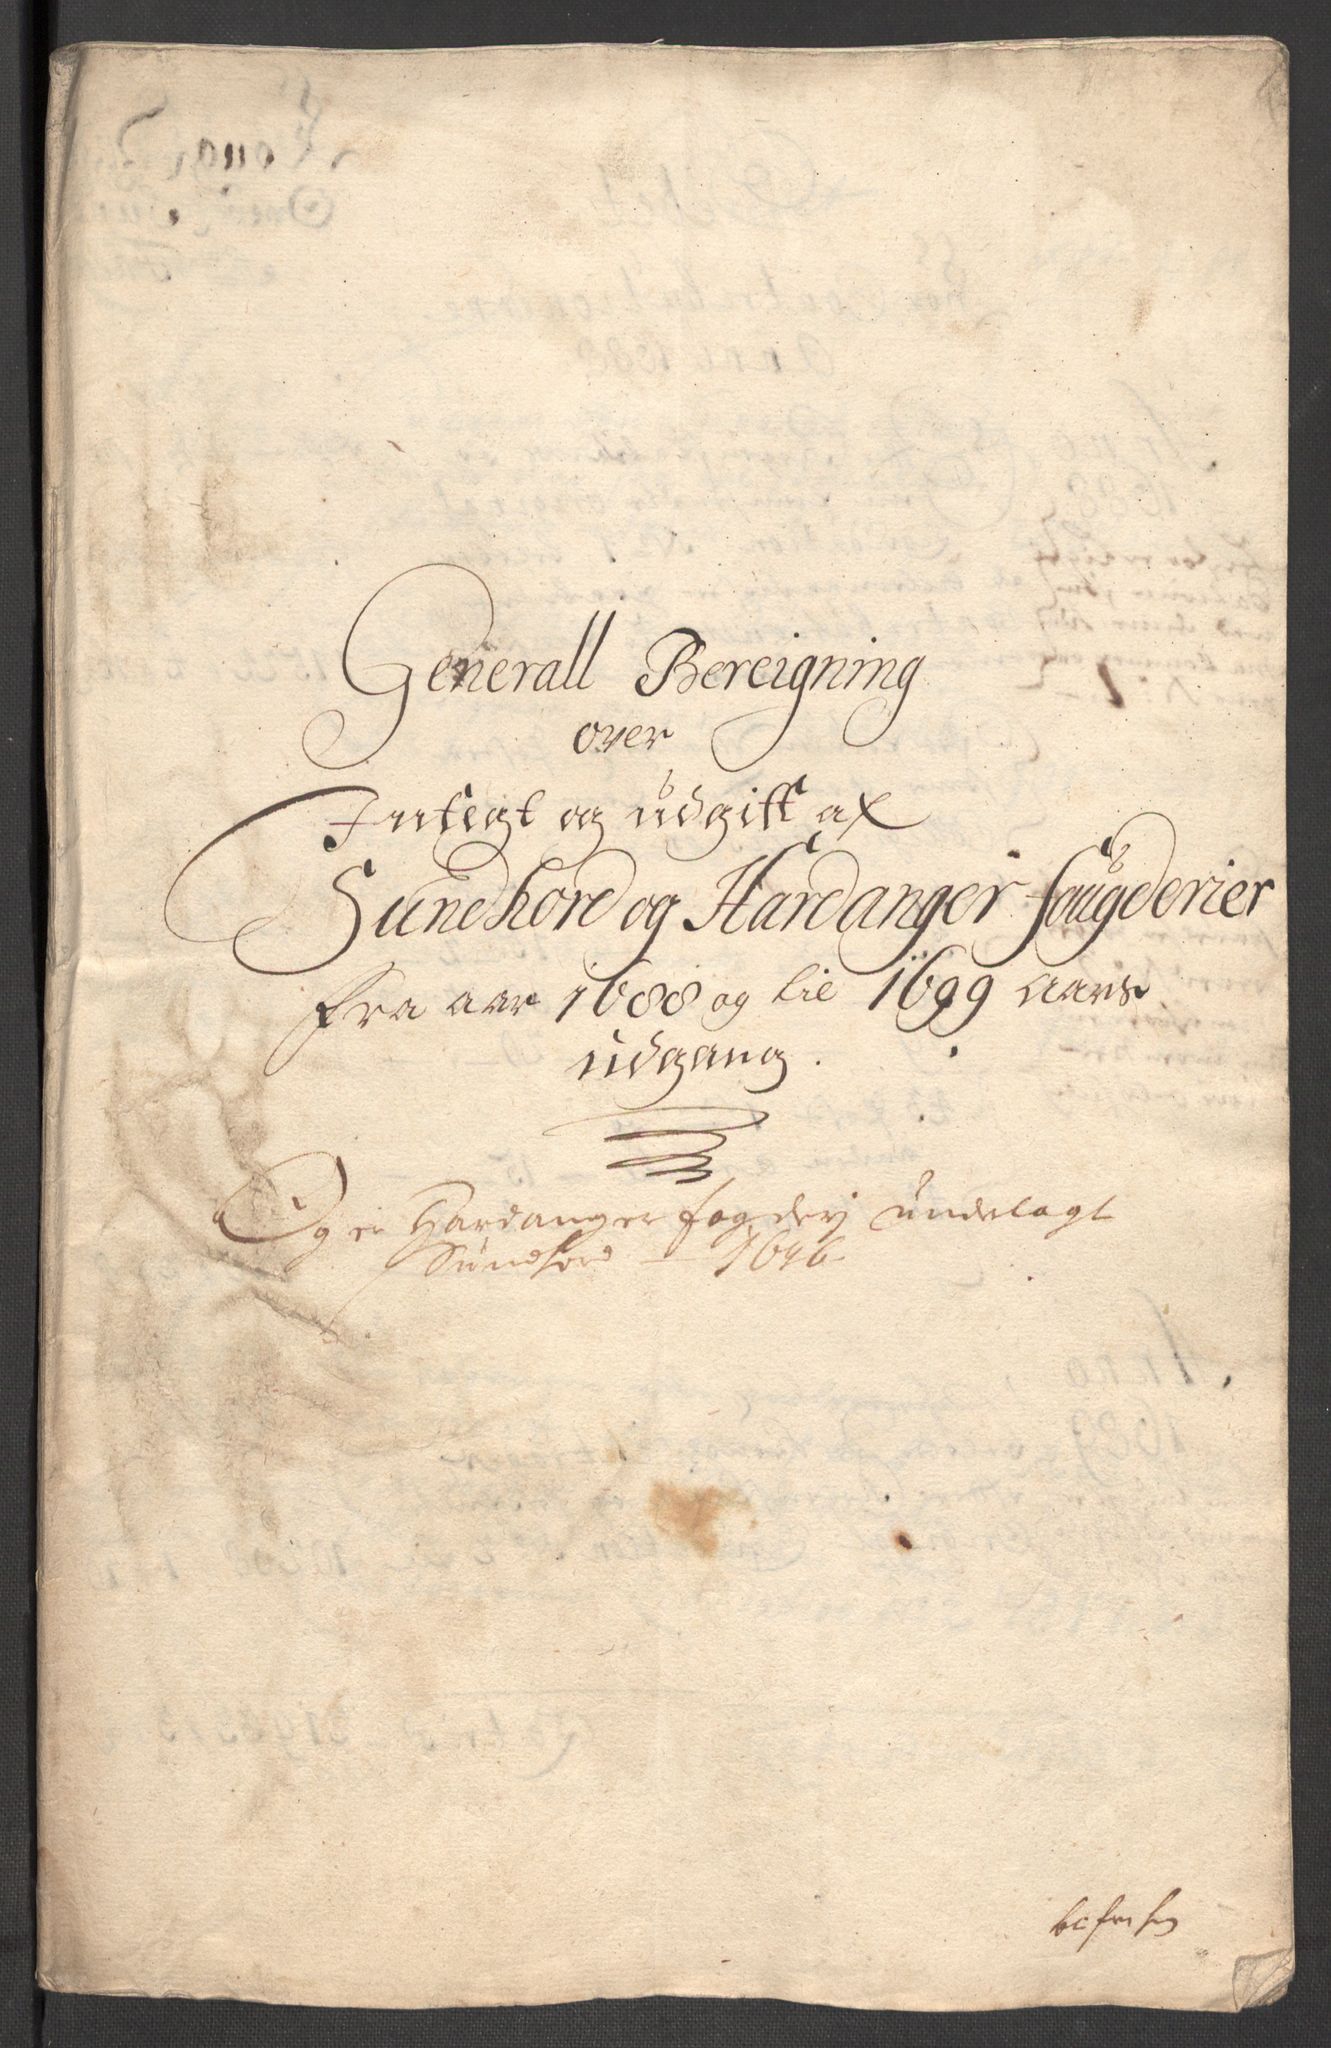 Generall Bereigning
over
Inteqt og udgift af
Sundhord og Hardanger fougderier
fra aar 1688 og til 1699 aars
udgang.
Og er Hardanger fogderj underlagt
Sundhord - 1696